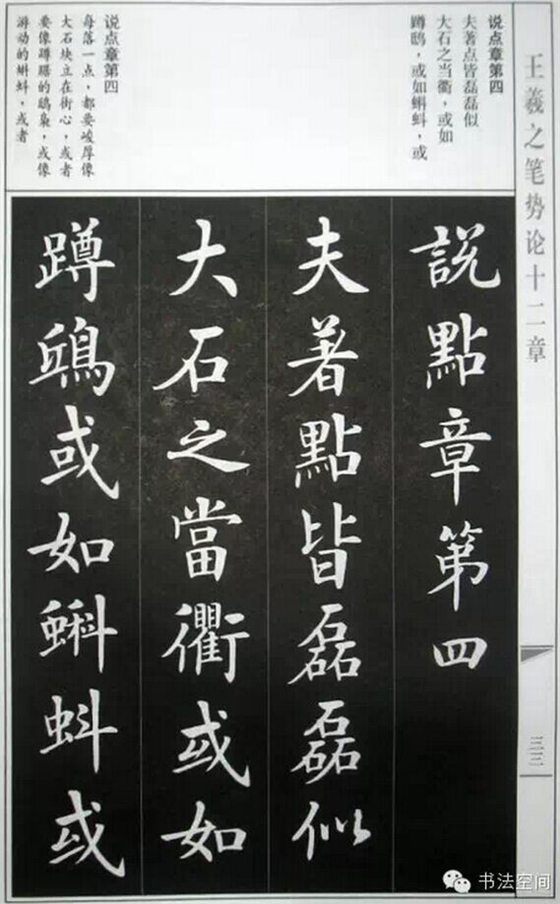 王羲之笔势论十二章
说点章第四
夫著点皆磊磊似
大石之当衢，或如
蹲鸱，或如蝌蚪，或
说点章第四
每落一点，都要峻厚像
大石块立在街心，或者
要像蹲踞的鸱枭，或像
游动的蝌蚪，或者
説點章第四
夫著點皆磊磊似
大石之當衢或如
蹲鴟或如蝌蚪或
三三
书法空间